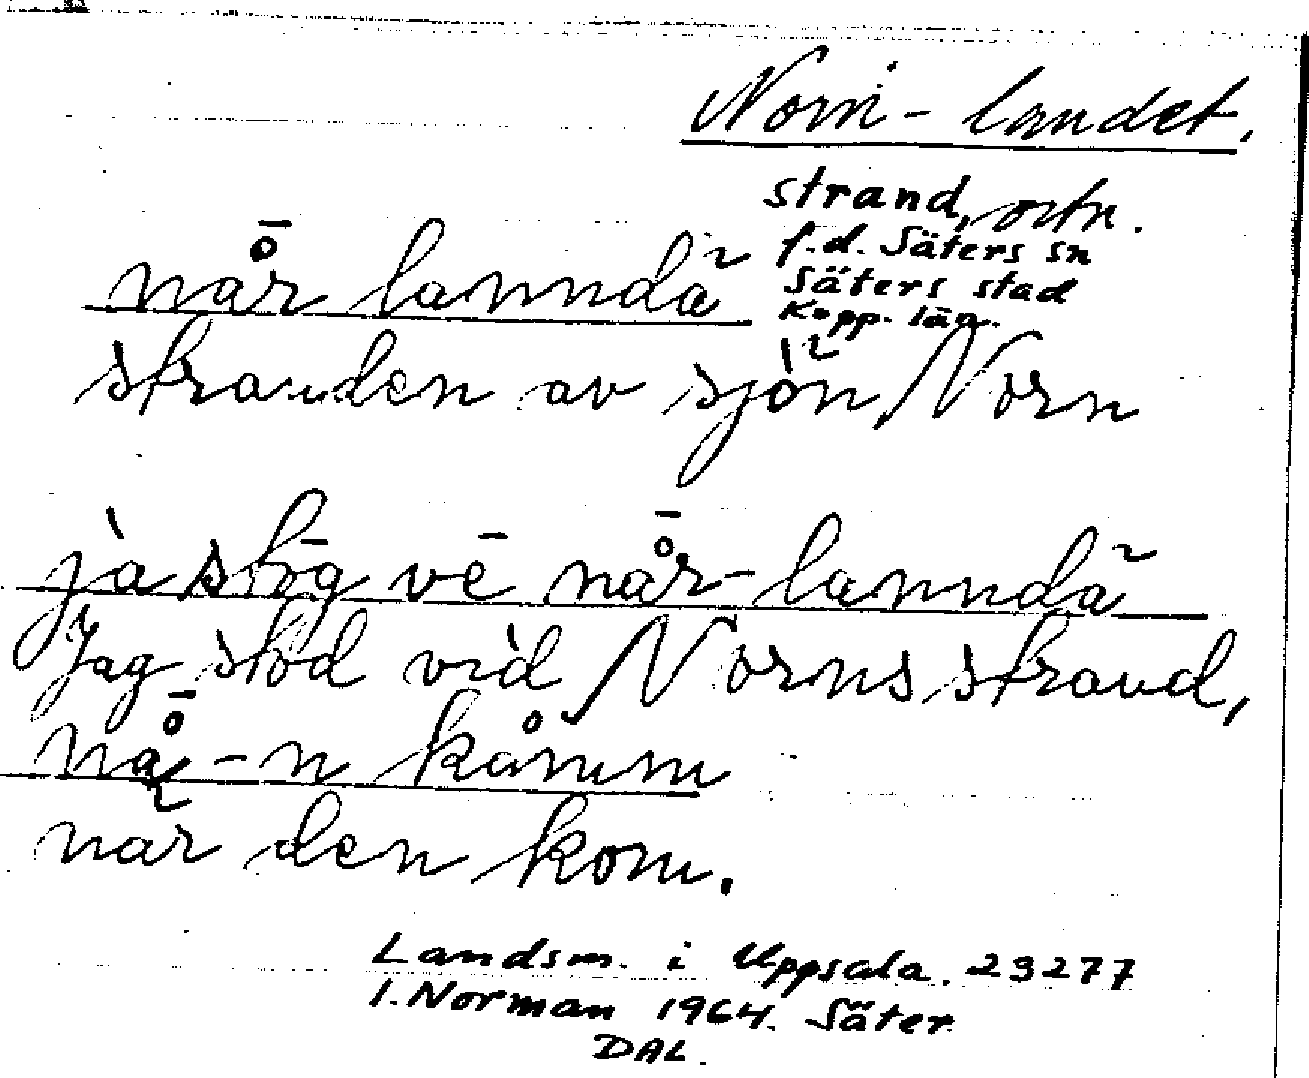 Norn-landet.
strand, ortn.
f.d. Säters sn
Säters stad
Kopp. län.
når lanndä
stranden av sjön Norn
ja stög ve når-lanndä
Jag stod vid Norns strand,
nå-n kåmm
när den kom.
Landsm. i Uppsala. 23277
I. Norman 1964. Säter
DAL.